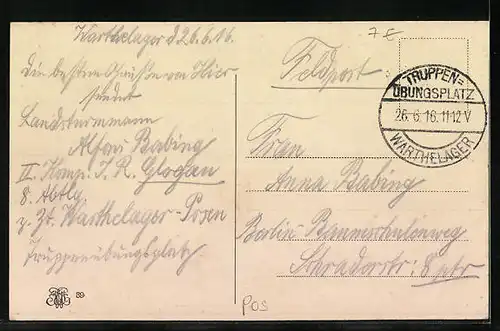 Warthelager d 26.6.16.
Die besten Grüße von Hier
sendet
Landsturmmann
Alfons Babing
II Komp. I. R. Glogau
8. Abtlg
z. Zt. Warthelager-Posen
Truppenübungsplatz
89
7€
Feldpost.
TRUPPEN=
ÜBUNGSPLATZ
26.6.16.11-12V
WARTHELAGER
Frau
Anna Babing
Berlin-Baumschulenweg
8 ptr
POS